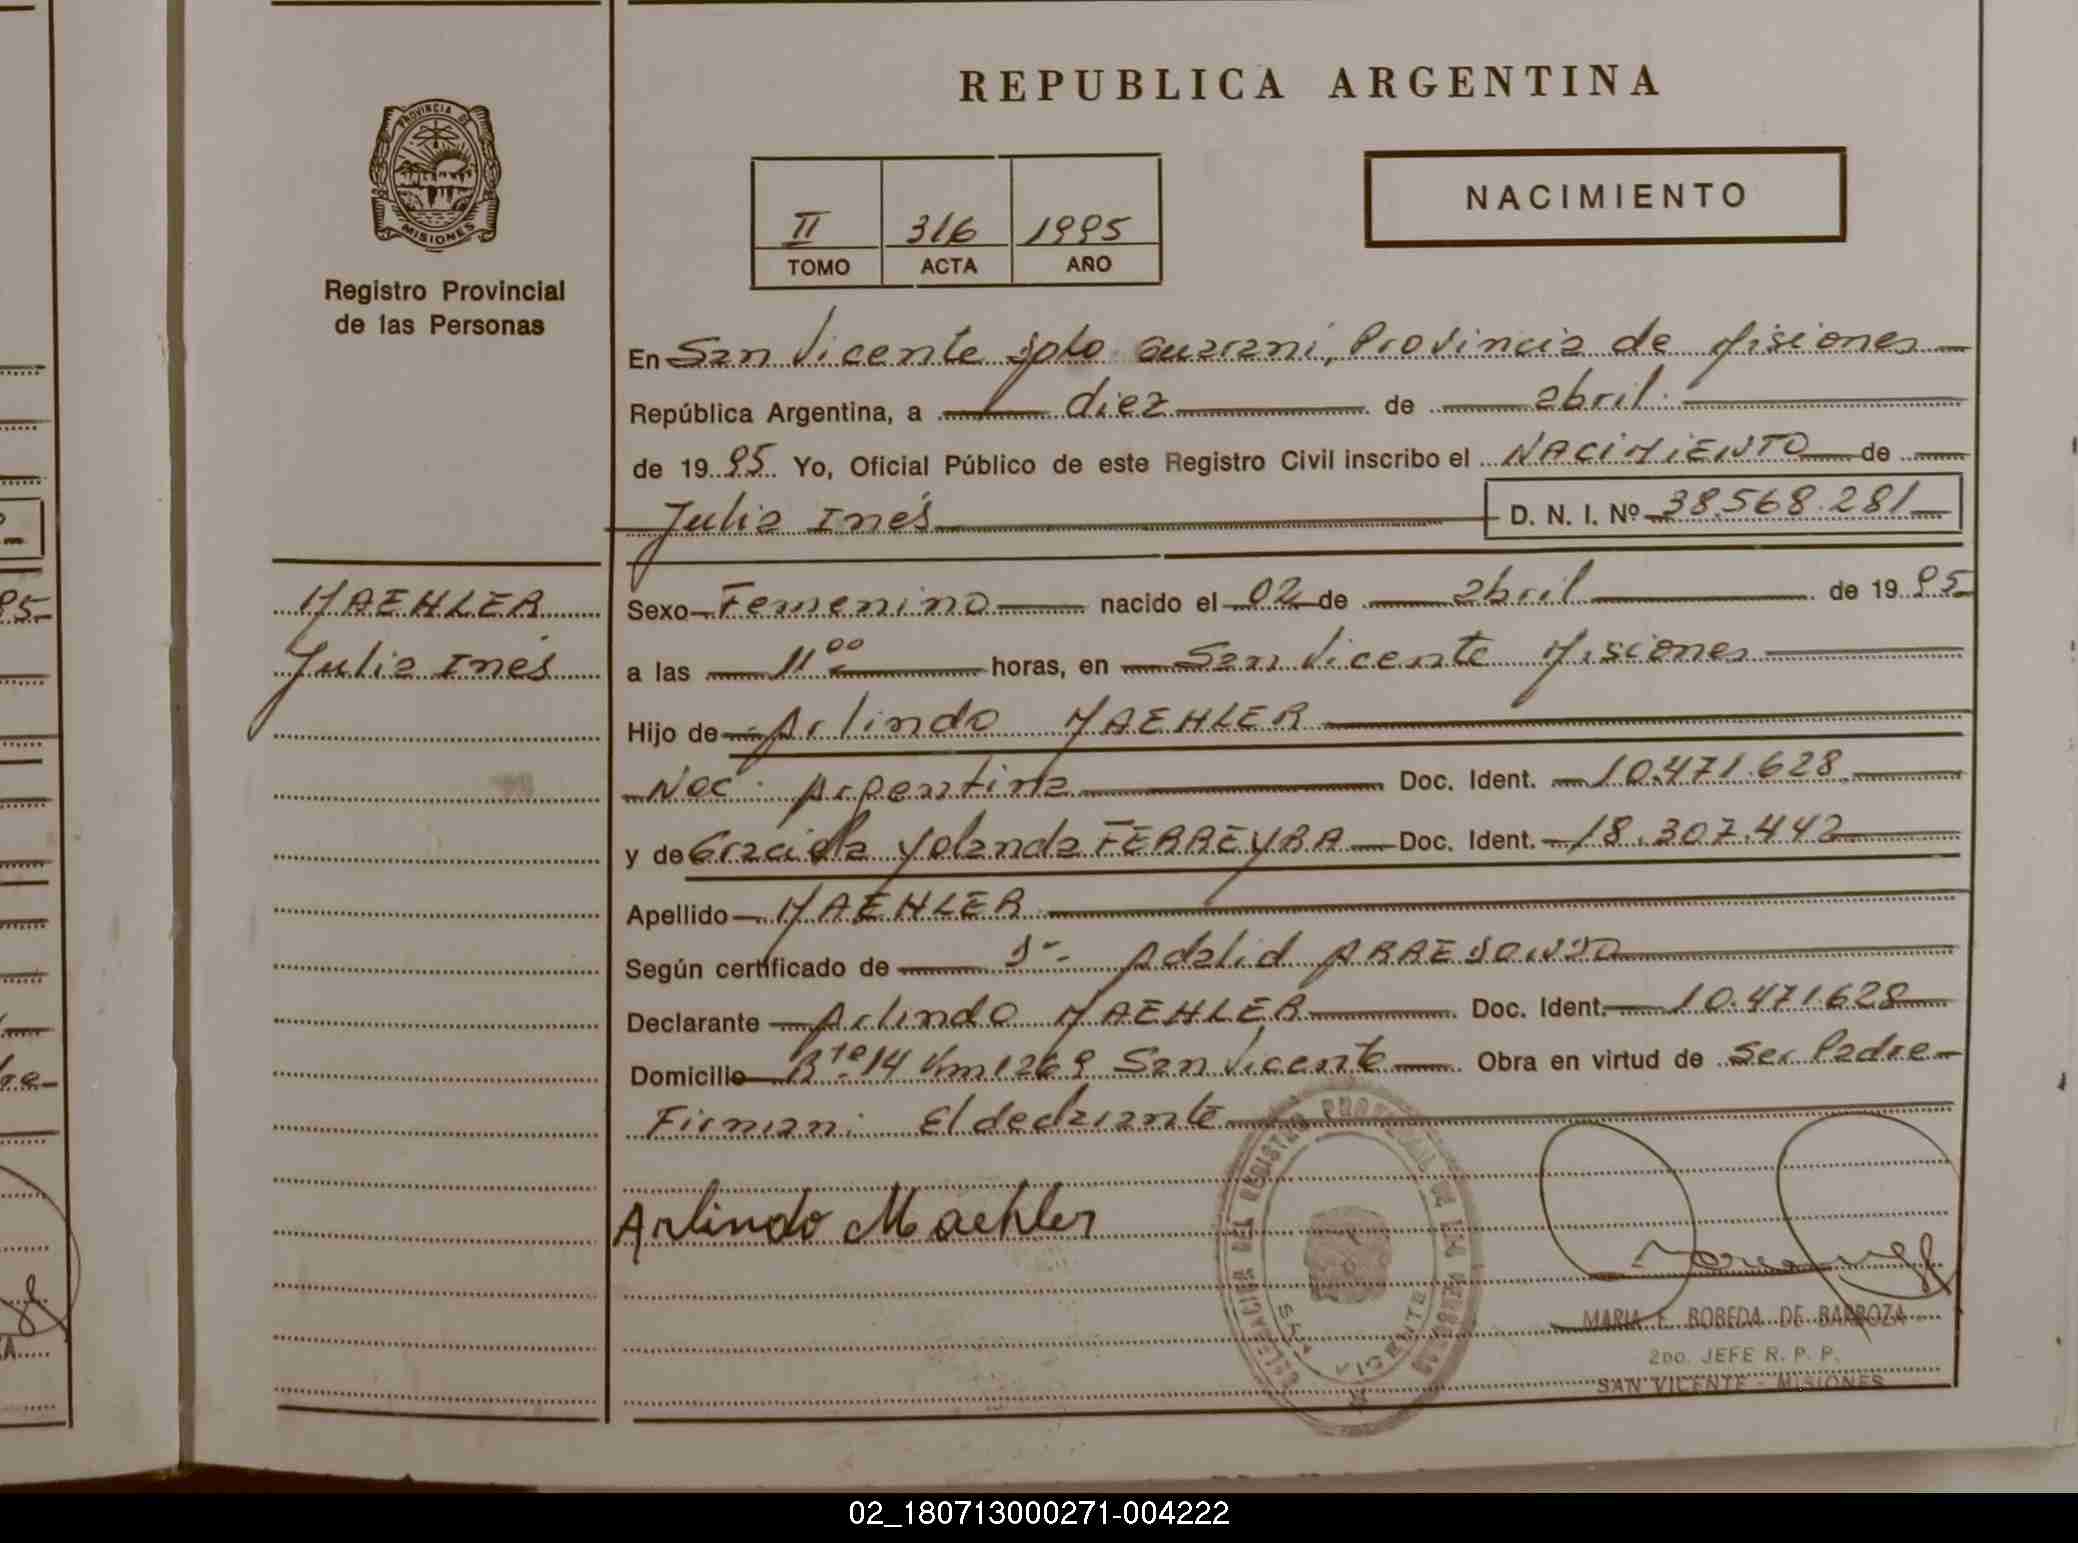 REPUBLICA ARGENTINA
PROVINCIA DE
MISIONES
Registro Provincial
de las Personas
NACIMIENTO
II 316 1995
TOMO ACTA AÑO
En San Vicente Dpto Guarani, Provincia de Misiones
República Argentina, a diez de abril
de 1995 Yo, Oficial Público de este Registro Civil inscribo el NACIMIENTO de
Julia Inés D. N. I. Nº 38.568.281
MAEHLER
Julia Inés
Sexo Femenino nacido el 02 de abril de 1995
a las 11 00 horas, en San Vicente Misiones
Hijo de Arlindo MAEHLER
Nac. Argentina Doc. Ident. 10.471.628
y de Graciela Yolanda FERREYRA Doc. Ident. 18.307.442
Apellido MAEHLER
Según certificado de Adalid
Declarante Arlindo MAEHLER Doc. Ident. 10.471628
Domicilio Rta 14 Km 1269 San Vicente Obra en virtud de Ser Padre
Firman: El declarante
Arlindo Maehler
DELEGACION DEL REGISTRO PROVINCIAL DE LAS PERSONAS
SAN VICENTE
MARIA E. BOBEDA DE BARBOZA
2DO. JEFE R. P. P.
SAN VICENTE - MISIONES
02_180713000271-004222